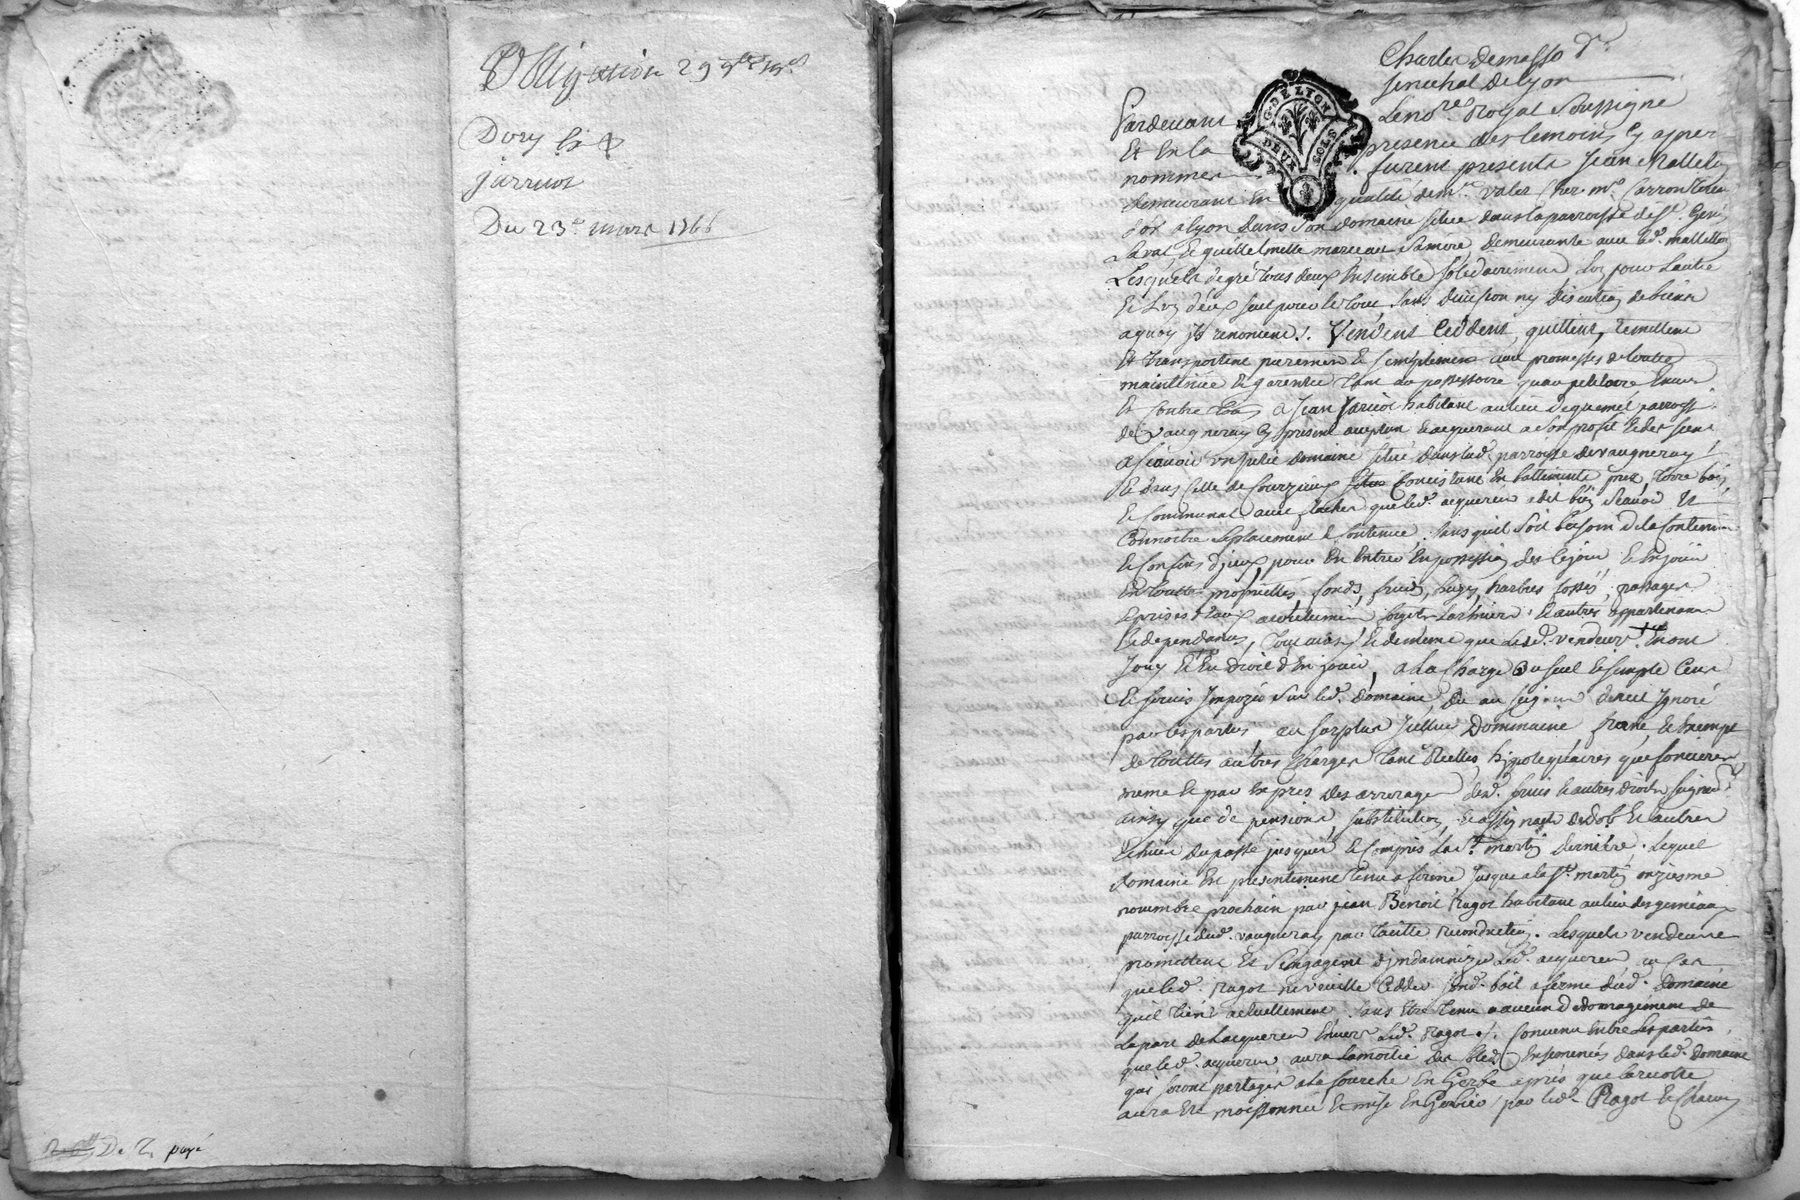 Obligation 299lt 19s
Dory lx
jarricot
Du 23e mars 1766
De T. payé
Charles demasso
senechal de lyon
Pardevant Le no.re Royal Soussigné
Et En la presence des temoins cy apres
nommes furent presents Jean Malleton
demeurant En qualité de m.e valet chez m.r Carron
à lyon dans son domaine situé dans la parroisse de s.t Genis
Laval Et guillelmette sa mere demeurante avec led. malleton
Lesquels de gré tous deux Ensemble solidairement L'un pour Lautre
Et L'un d'eux seul pour le tout, sans division ny discution de biens
a quoy Ils renoncent. Vendent Ceddent, quittent, remettent
Et transportent purement Et simplement avec promesses de toutes
maintenüe Et garentie tant au possessoire quau petitoire Envers
Et Contre tous a Jean Jaricot habitant au lieu de parroisse
de vaugneray cy present acceptant Et acquerant a son profit Et des siens
a sçavoir un petit domaine situé dans lad. parroisse de vaugneray
Et dans Celle de Courzieux Consistant En battiments prez, terre bois,
Et Communal que led. acquereur a dit bien scavoir Et
Connoitre Leplacement Et Contenüe, sans quil soit besoin de la Contenüe
Et Confins d'jceux, pour En Entrer En possession des Cejour, Et En jouir
En toutes proprietés, fonds, fruits, hayes, harbres fossés, passages
Et prises d'eaux Et autres appartenances
Et dependances, tout ainsy Et de meme que Lesd. vendeurs En ont
Jouy Et Eu droit d'En jouir, a la Charge du seul Et simple Cens
Et servis Imposée sur led. domaine, Dû au seigneur direct Ignoré
par les parties, au surplus Jcelluy Dommaine franc Et Exempt
de touttes autres Charges tant Reelles, hipotequaires que foncieres
meme Et par Expres des arrerages desd. servis Et autres droits seigneur.x
ainsy que de pensions, substitution, Et assignats de dot Et autres
Echus du passé jusques Et Compris la s.t martin derniere. Lequel
domaine Est presentement tenu a ferme Jusque a la s.t martin onziesme
novembre prochain par jean Benoit Ragot habitant au lieu des gemeaux
parroisse dud. vaugneray par taitte reconduction. Lesquels vendeurs
promettent Et s'engagent d'jndamnizer led. acquereur au Cas
que led. Ragot ne veuille Cedder sond. bail a ferme dud. domaine
qu'il tient actuellement sans Etre tenu a aucun dedomagement de
La part de Lacquereur Envers led. Ragot. Convenu Entre Les parties
que led. acquereur aura La moitié des bleds Ensemencés dans led. domaine
qui seront partagés a la fourche En Gerbe apres que la recolte
aura Eté moissonnée Et mise En Gerbier par led. Ragot Et
G. DE LYON
DEUX SOLS